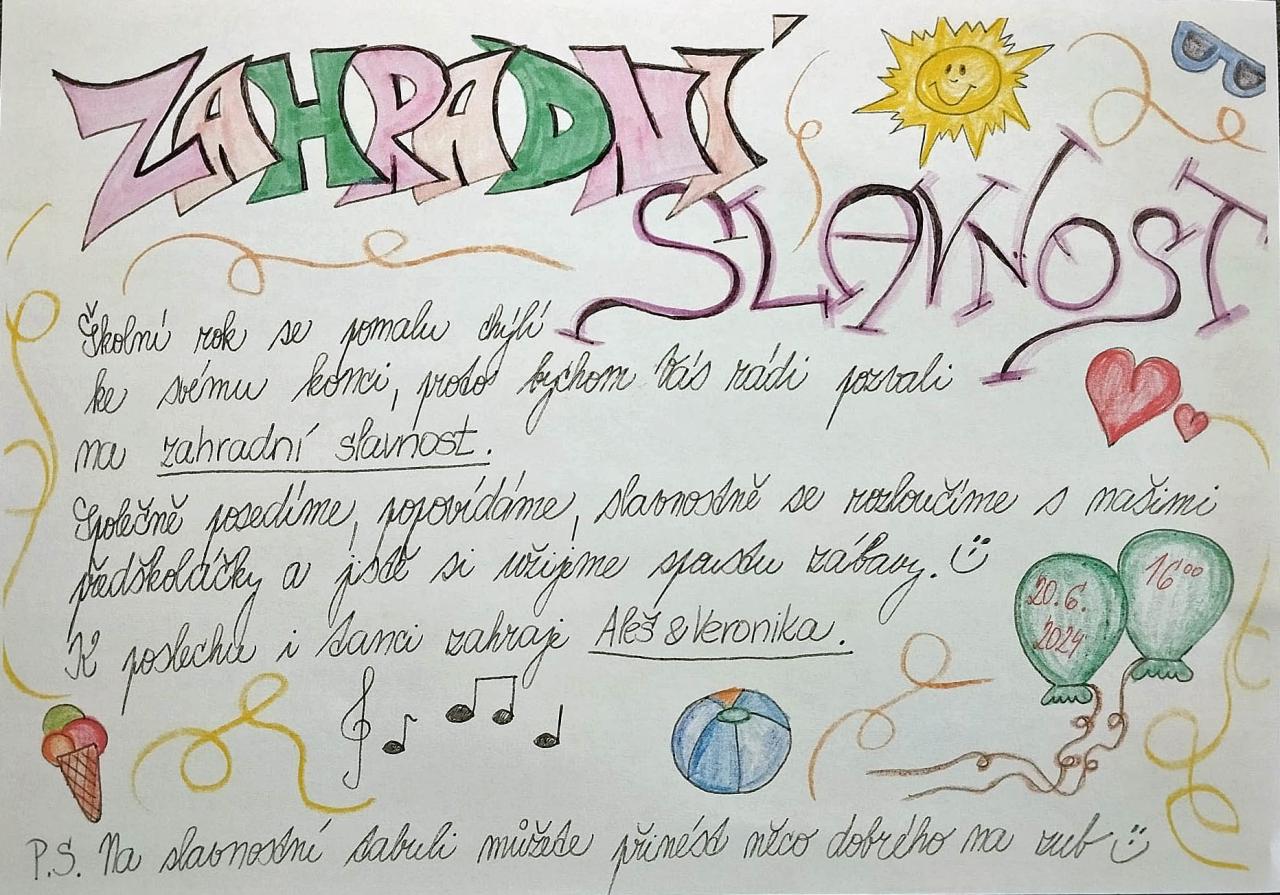 ZAHRADNÍ
SLAVNOST
Školní rok se pomalu chýlí
ke svému konci, proto bychom Vás rádi pozvali
na zahradní slavnost.
Společně posedíme, popovídáme, slavnostně se rozloučíme s našimi
předškoláčky a jistě si užijeme spoustu zábavy. :)
K poslechu i tanci zahraje Aleš & Veronika.
20. 6.
2024
16⁰⁰
P.S. Na slavnostní tabuli můžete přinést něco dobrého na zub :)